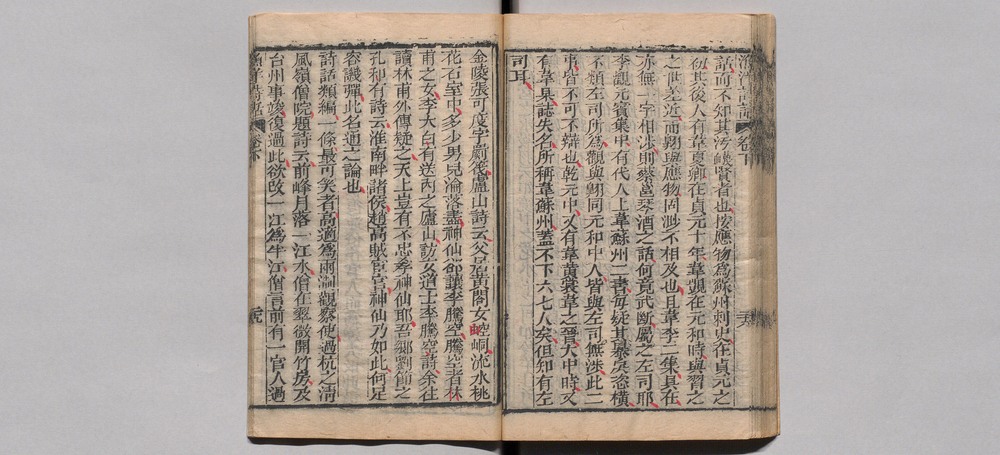 話而不知其污衊賢者也按應物為蘇州刺史在貞元之
初其後人有韋夏卿在貞元十年韋覬在元和時與習之
之世差近而翺與應物固渺不相及也且韋李二集具在
亦無一字相涉則蔡邕琴酒之話何竟武斷屬之左司耶
李觀元賓集中有代人上韋蘇州二書每疑其暴戾恣橫
不類左司所為觀與翺同元和中人皆與左司無涉此二
事皆不可不辯也乾元中又有韋黃裳韋之晉大中時又
有韋某誌失名所稱韋蘇州蓋不下六七人矣但知有左
司耳
金陵張可度字罽筏廬山詩云父居黃閣女崆峒流水桃
花石室中多少男兒淪落盡神仙卻讓李騰空騰空者林
甫之女李太白有送內之廬山訪女道士李騰空詩余往
讀林甫外傳疑之天上豈有不忠孝神仙耶吾鄉劉節之
孔和有詩云淮南畔諸侯趙高賊宦官神仙乃如此何足
容譏彈此名通之論也
詩話類編一條最可笑者高適為兩浙觀察使過杭之清
風嶺僧院題詩云前峰月落一江水僧在翠微開竹房及
台州事竣復過此欲改一江為半江僧言前有一官人過